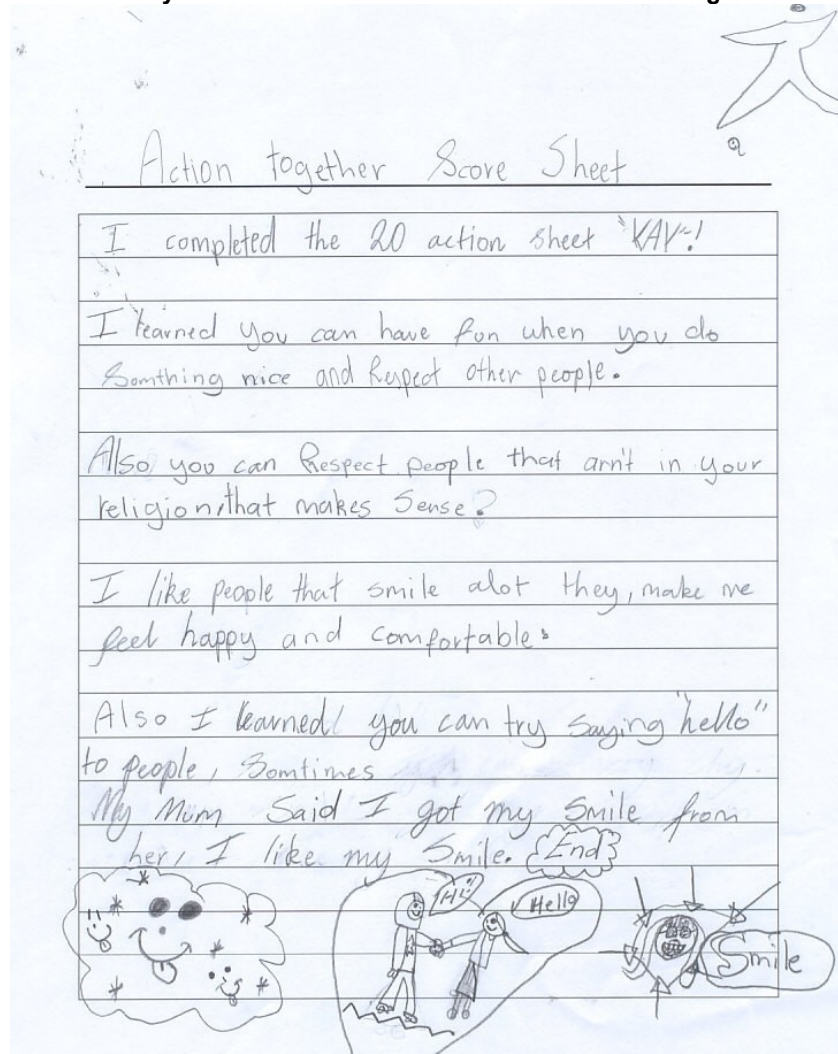 Action together Score Sheet
I completed the 20 action sheet "YAY"!
I learned you can have fun when you do
Somthing nice and Respect other people.
Also you can Respect people that arn't in your
religion, that makes Sense?
I like people that smile alot they, make me
feel happy and comfortable.
Also I learned you can try saying "hello"
to people, Somtimes
My Mum Said I got my Smile from
her, I like my Smile. End
Hi
Hello
Smile